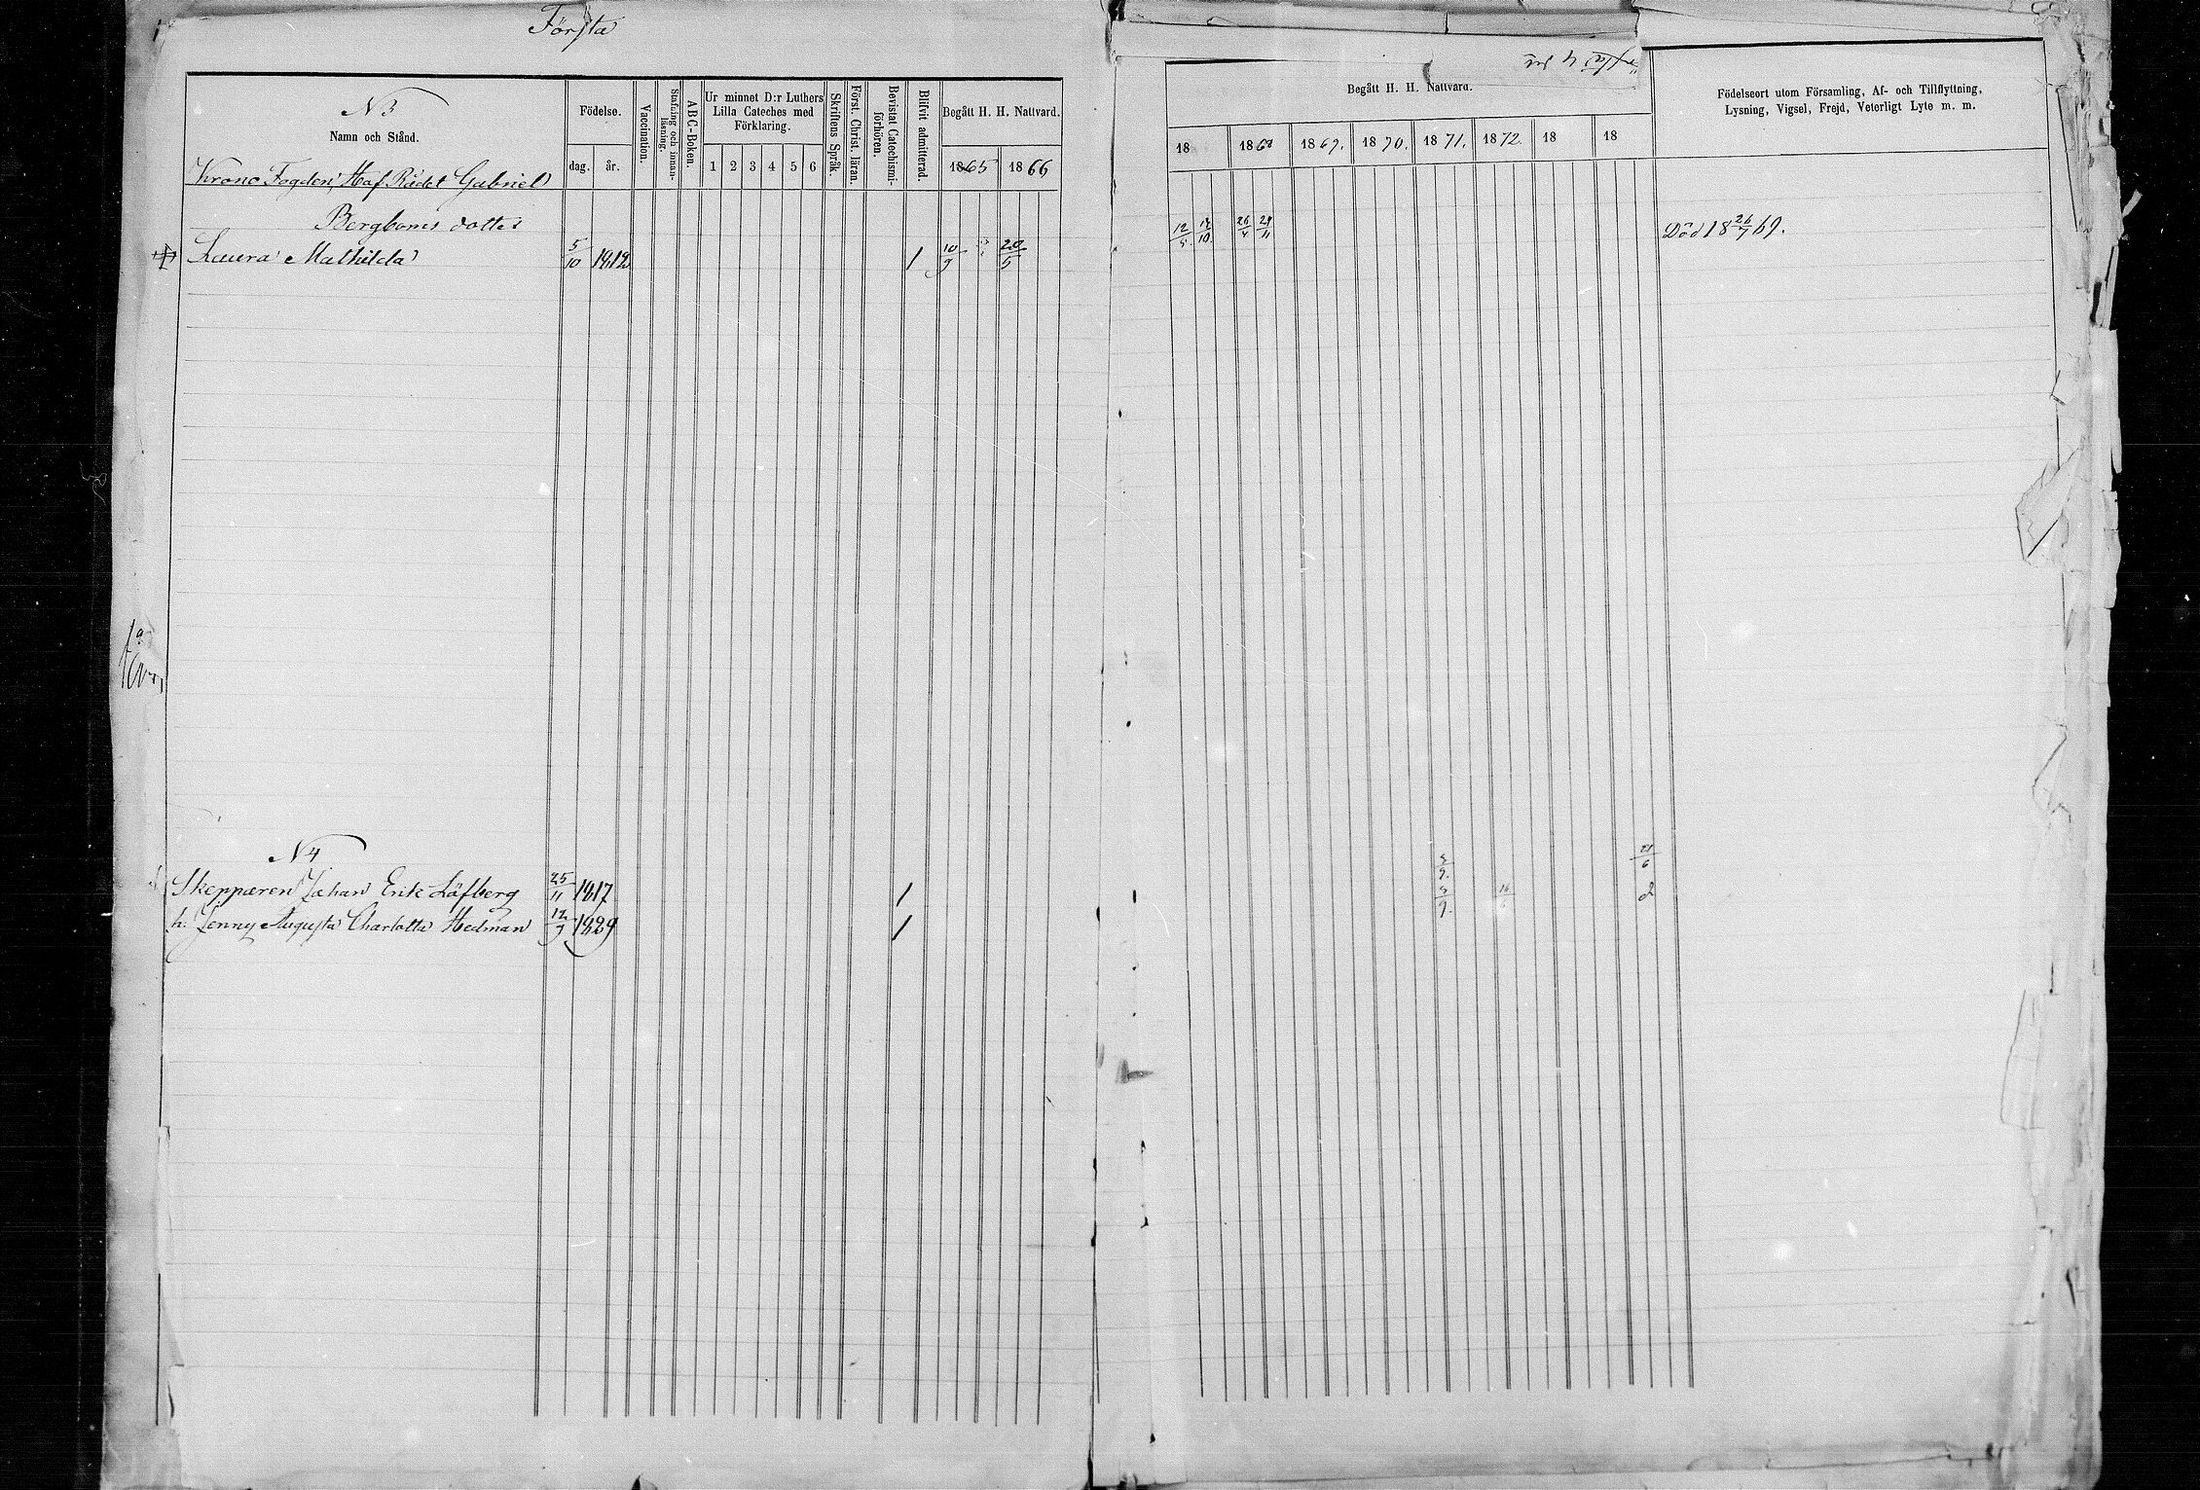 Första
N 3
Namn och Stånd.
Födelse.
dag. år.
Vaccination.
Stafning och innanläsning.
ABC-Boken.
Ur minnet D:r Luthers
Lilla Cateches med
Förklaring.
1 2 3 4 5 6
Skriftens Språk.
Först. Christ. läran.
Bevistat Catechismiförhören.
Blifvit admitterad.
Begått H. H. Nattvard.
1865 1866
Krono Fogden Hof Rådet Gabriel
Bergboms dotter
Laura Mathilda 5/10 1812 1 10/9 20/5
N 4
Skepparen Johan Erik Löfberg 25/11 1817 1
h: Jenny Augusta Charlotta Hedman 12/9 1829 1
Begått H. H. Nattvard.
18 1868 1869. 1870. 1871. 1872. 18 18
Födelseort utom Församling, Af- och Tillflyttning,
Lysning, Vigsel, Frejd, Veterligt Lyte m. m.
12/5 12/10 26/4 29/11 Död 18 26/7 69.